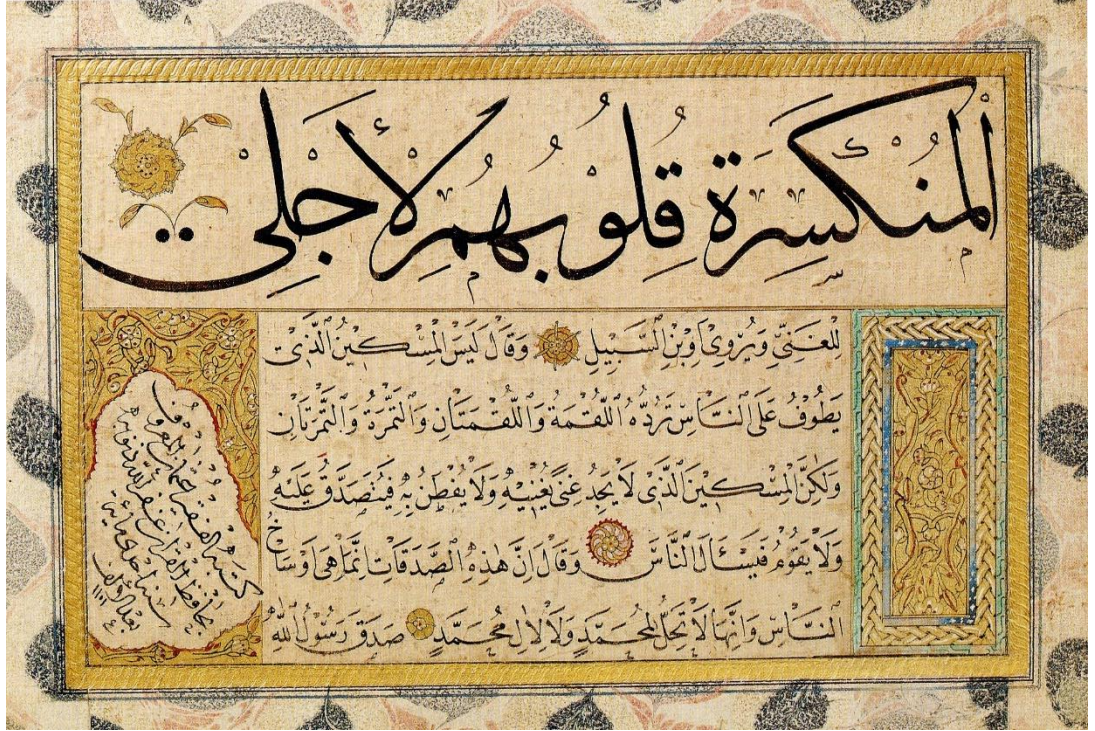 اَلْمُنْكَسِرَةِ قُلُوبُهُمْ لِأَجْلِي
لِلْغَنِيِّ وَيُرْوٰى اَوِبْنِ السَّبِيلِ وَقَالَ لَيْسَ الْمِسْكِينُ الَّذِي
يَطُوفُ عَلَى النَّاسِ تَرُدُّهُ اللُّقْمَةُ وَاللُّقْمَتَانِ وَالتَّمْرَةُ وَالتَّمْرَتَانِ
وَلٰكِنَّ الْمِسْكِينَ الَّذِي لَا يَجِدُ غِنًى يُغْنِيهِ وَلَا يُفْطَنُ بِهِ فَيُتَصَدَّقُ عَلَيْهِ
وَلَا يَقُومُ فَيَسْأَلَ النَّاسَ وَقَالَ اِنَّ هٰذِهِ الصَّدَقَاتِ اِنَّمَا هِيَ اَوْسَاخُ
النَّاسِ وَاِنَّهَا لَا تَحِلُّ لِمُحَمَّدٍ وَلَا لِاٰلِ مُحَمَّدٍ صَدَقَ رَسُولُ اللّٰهِ
كتبه الفقير عثمان المعروف
بحافظ القرآن غفر الله ذنوبه
سنة احدى ومائة
بعد الالف
١١٠١